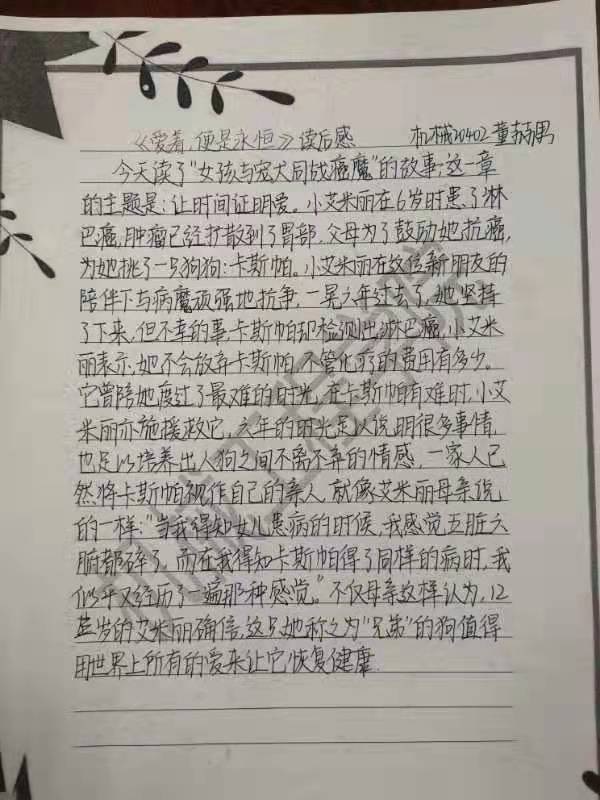 《爱着,便是永恒》读后感 机械20402 董赫男
今天读了"女孩与宠犬同战癌魔"的故事;这一章
的主题是:让时间证明爱。小艾米丽在6岁时患了淋
巴癌,肿瘤已经扩散到了胃部,父母为了鼓励她抗癌,
为她挑了一只狗狗:卡斯帕。小艾米丽在这位新朋友的
陪伴下与病魔顽强地抗争,一晃六年过去了,她坚持
了下来,但不幸的事,卡斯帕却检测出淋巴癌,小艾米
丽表示,她不会放弃卡斯帕,不管化疗的费用有多少。
它曾陪她度过了最难的时光,在卡斯帕有难时,小艾
米丽亦施援救它,六年的时光足以说明很多事情,
也足以培养出人狗之间不离不弃的情感,一家人已
然将卡斯帕视作自己的亲人,就像艾米丽母亲说
的一样:"当我得知女儿患病的时候,我感觉五脏六
腑都碎了,而在我得知卡斯帕得了同样的病时,我
似乎又经历了一遍那种感觉。"不仅母亲这样认为,12
岁的艾米丽确信,这只她称之为"兄弟"的狗值得
用世界上所有的爱来让它恢复健康